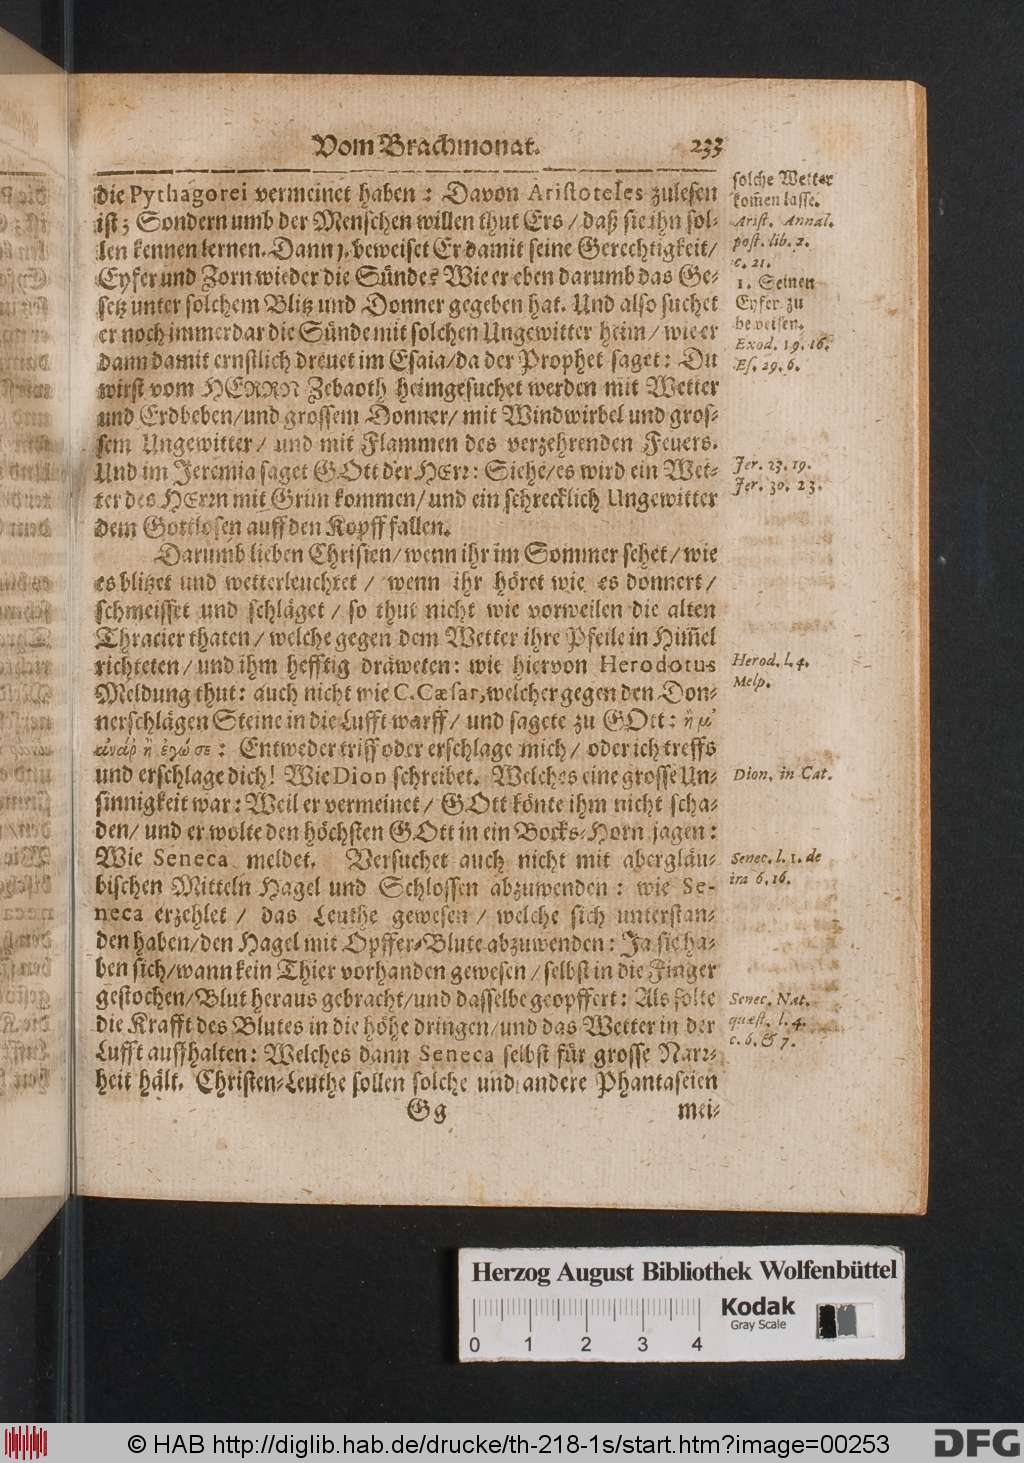 Vom Brachmonat. 233
die Pythagorei vermeinet haben: Davon Aristoteles zulesen
ist; Sondern umb der Menschen willen thut Ers / daß sie ihn sol-
len kennen lernen. Dann 1. beweiset Er damit seine Gerechtigkeit /
Eyfer und Zorn wieder die Sünde: Wie er eben darumb das Ge-
setz unter solchem Blitz und Donner gegeben hat. Und also suchet
er noch immerdar die Sünde mit solchen Ungewitter heim / wie er
dann damit ernstlich dreuet im Esaia / da der Prophet saget: Du
wirst vom HERRN Zebaoth heimgesuchet werden mit Wetter
und Erdbeben / und grossem Donner / mit Windwirbel und gros-
sem Ungewitter / und mit Flammen des verzehrenden Feuers.
Und im Jeremia saget GOtt der HErr: Siehe / es wird ein Wet-
ter des HErrn mit Grim kommen / und ein schrecklich Ungewitter
dem Gottlosen auff den Kopff fallen.
Darumb lieben Christen / wenn ihr im Sommer sehet / wie
es blitzet und wetterleuchtet / wenn ihr höret wie es donnert /
schmeisset und schläget / so thut nicht wie vorweilen die alten
Thracier thaten / welche gegen dem Wetter ihre Pfeile in Him̃el
richteten / und ihm hefftig dräweten: wie hiervon Herodotus
Meldung thut: auch nicht wie C. Cæsar, welcher gegen den Don-
nerschlägen Steine in die Lufft warff / und sagete zu GOtt: ἢ μ'
ἀνάρ ἢ ἐγώ σε: Entweder triff oder erschlage mich / oder ich treffs
und erschlage dich! Wie Dion schreibet. Welches eine grosse Un-
sinnigkeit war: Weil er vermeinet / GOtt könte ihm nicht scha-
den / und er wolte den höchsten GOtt in ein Bocks-Horn jagen:
Wie Seneca meldet. Versuchet auch nicht mit abergläu-
bischen Mitteln Hagel und Schlossen abzuwenden: wie Se-
neca erzehlet / das Leuthe gewesen / welche sich unterstan-
den haben / den Hagel mit Opffer-Blute abzuwenden: Ja sie ha-
ben sich / wann kein Thier vorhanden gewesen / selbst in die Finger
gestochen / Blut heraus gebracht / und dasselbe geopffert: Als solte
die Krafft des Blutes in die höhe dringen / und das Wetter in der
Lufft auffhalten: Welches dann Seneca selbst für grosse Narr-
heit hält. Christen-Leuthe sollen solche und andere Phantaseien
Gg mei-
solche Wetter
kom̃en lasse.
Arist. Annal.
post. lib. 2.
c. 21.
1. Seinen
Eyfer zu
beweisen.
Exod. 19. 16.
Es. 29. 6.
Jer. 23. 19.
Jer. 30. 23.
Herod. l. 4.
Melp.
Dion. in Cat.
Senec. l. 1. de
ira 6. 16.
Senec. Nat.
quæst. l. 4.
c. 6. & 7.
Herzog August Bibliothek Wolfenbüttel
Kodak
Gray Scale
0 1 2 3 4
© HAB http://diglib.hab.de/drucke/th-218-1s/start.htm?image=00253
DFG